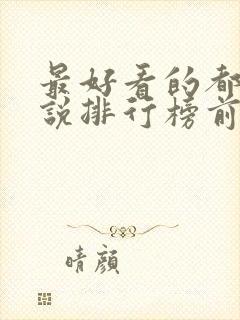 最好看的都
说排行榜前
晴颜